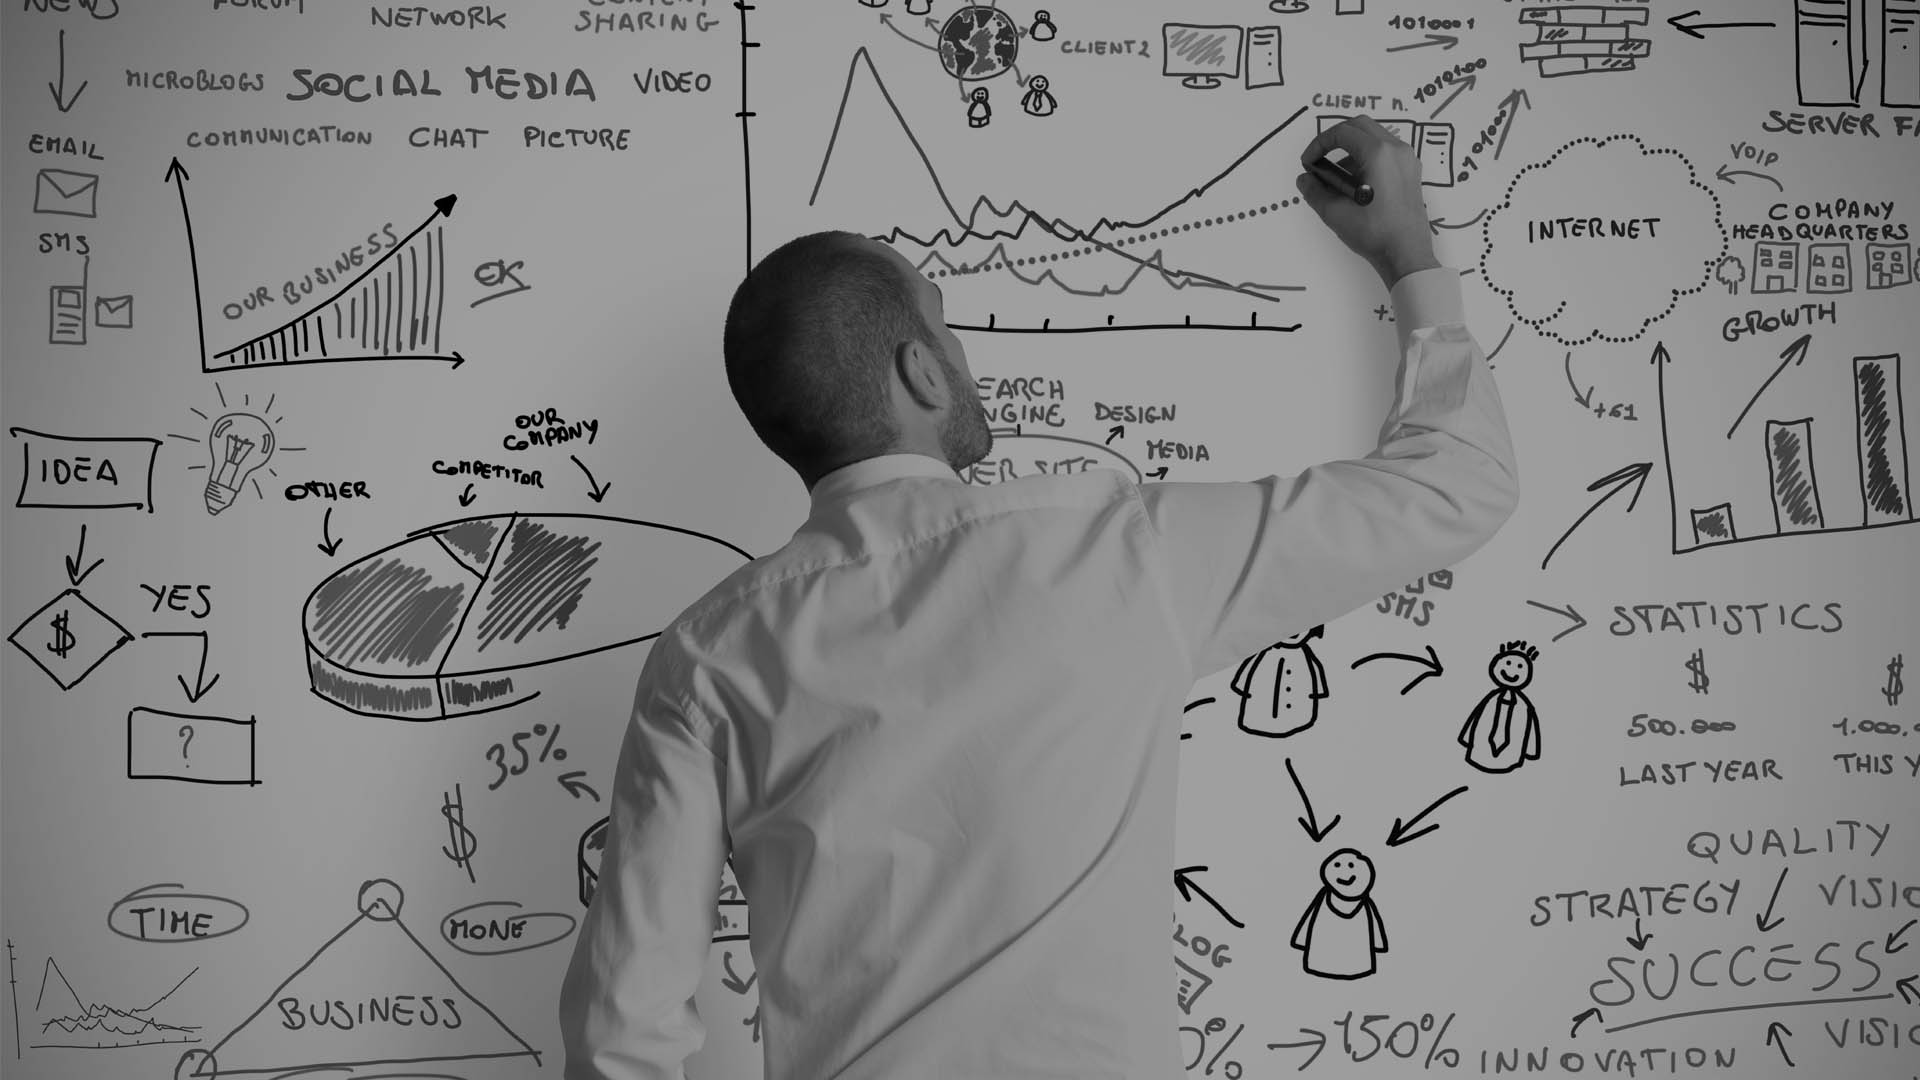 NEWS
FORUM
NETWORK
CONTENT
SHARING
MICROBLOGS
SOCIAL MEDIA
VIDEO
COMMUNICATION
CHAT
PICTURE
EMAIL
SMS
OUR BUSINESS
OK
IDEA
$
YES
?
OTHER
COMPETITOR
OUR
COMPANY
35%
$
TIME
MONE
BUSINESS
CLIENT 2
CLIENT n.
1010001
1010100
SERVER FA
INTERNET
VOIP
COMPANY
HEADQUARTERS
GROWTH
+61
EARCH
NGINE
DESIGN
MEDIA
ER SITE
SMS
STATISTICS
$
$
500.000
1.000.
LAST YEAR
THIS Y
QUALITY
STRATEGY
VISIO
SUCCESS
INNOVATION
VISIO
LOG
0%
150%